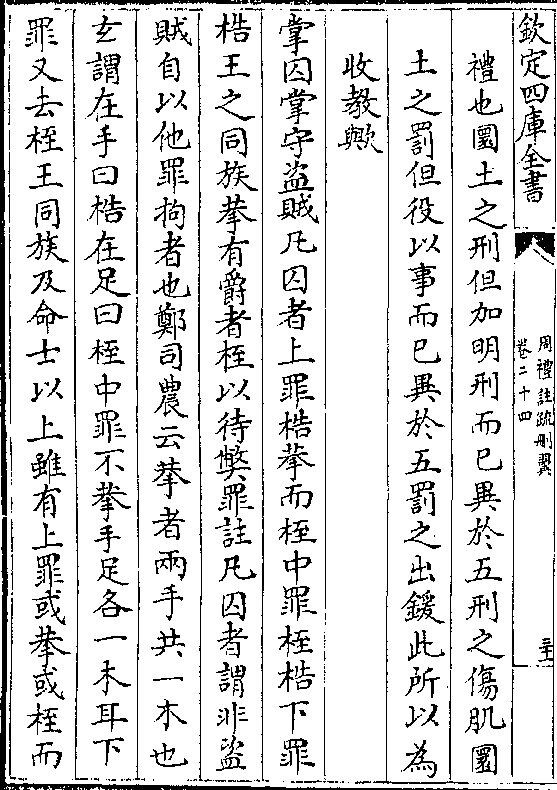 欽定四庫全書
周禮註疏刪翼
卷二十四
三十一
禮也圜土之刑但加明刑而已異於五刑之傷肌圜
土之罰但役以事而已異於五罰之出鍰此所以為
收教歟
掌囚掌守盜賊凡囚者上罪梏拲而桎中罪桎梏下罪
梏王之同族拲有爵者桎以待弊罪註凡囚者謂非盜
賊自以他罪拘者也鄭司農云拲者兩手共一木也
玄謂在手曰梏在足曰桎中罪不拲手足各一木耳下
罪又去桎王同族及命士以上雖有上罪或拲或桎而